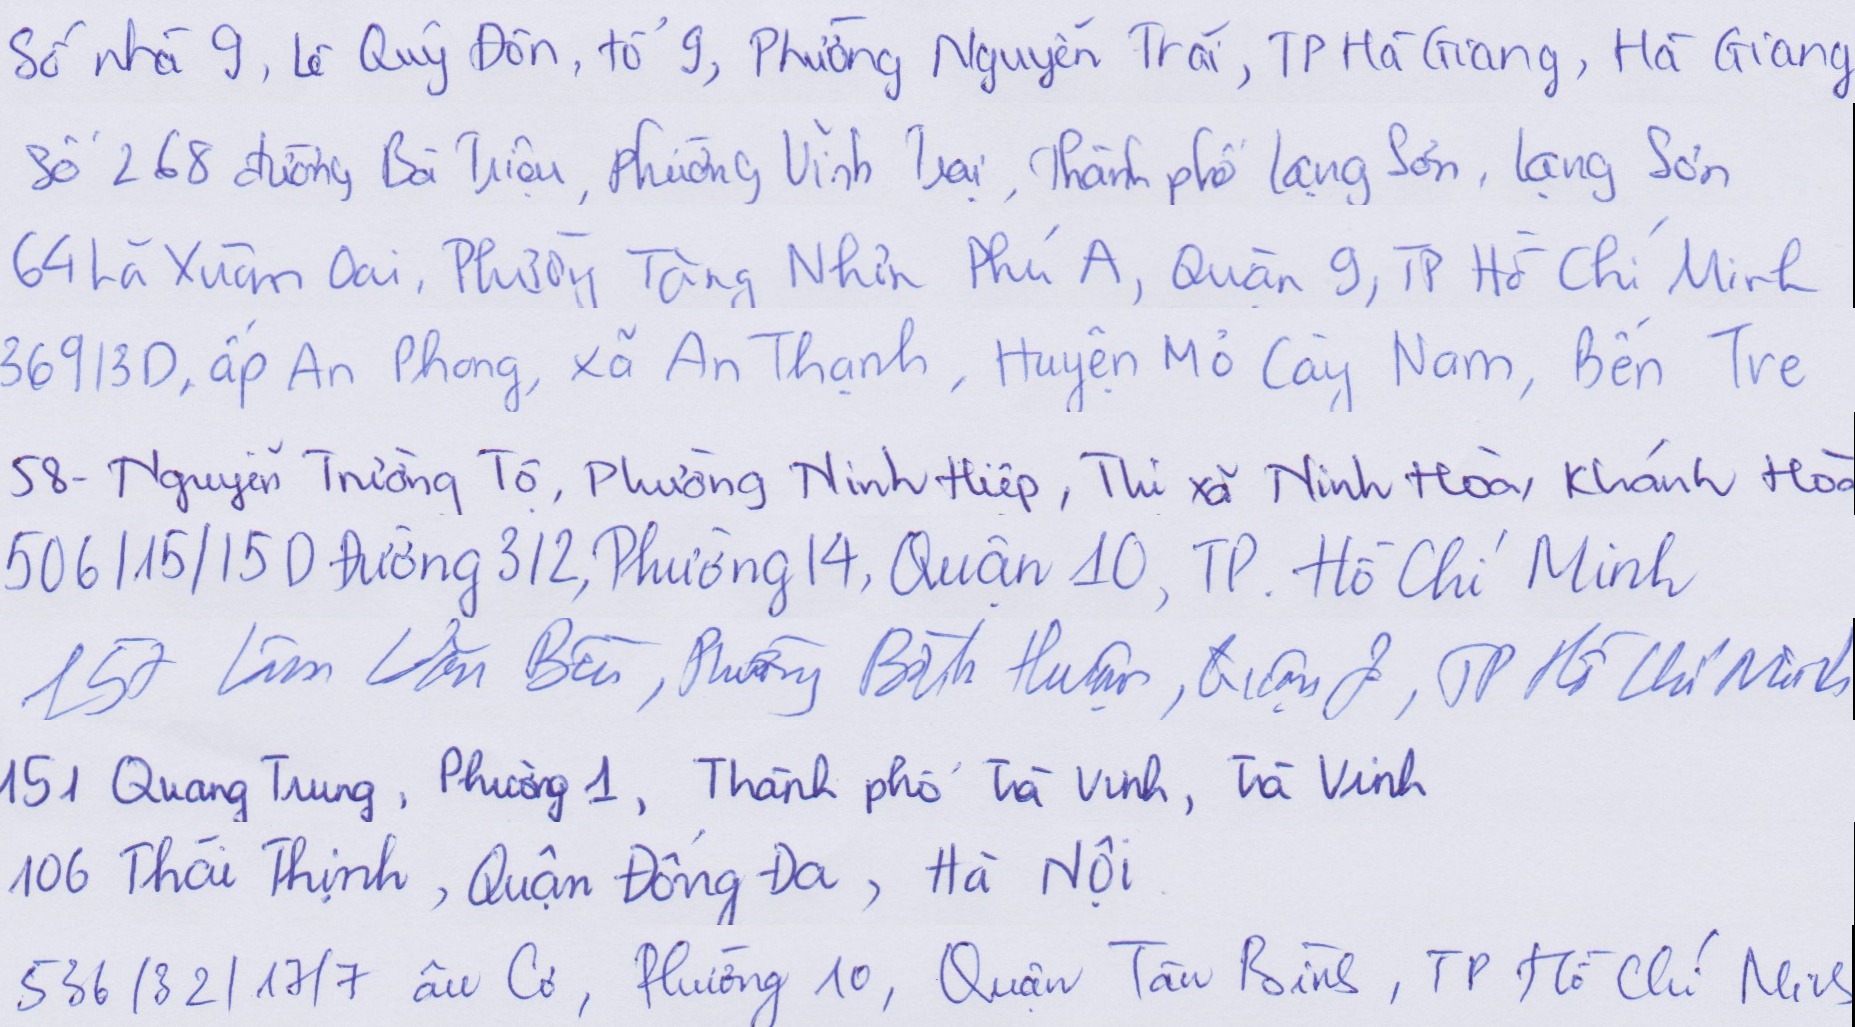 Số nhà 9, Lê Quý Đôn, tổ 9, Phường Nguyễn Trãi, TP Hà Giang, Hà Giang
Số 268 đường Bà Triệu, phường Vĩnh Trại, Thành phố Lạng Sơn, Lạng Sơn
64 Lã Xuân Oai, Phường Tăng Nhơn Phú A, Quận 9, TP Hồ Chí Minh
369/3D, ấp An Phong, xã An Thạnh, Huyện Mỏ Cày Nam, Bến Tre
58- Nguyễn Trường Tộ, Phường Ninh Hiệp, Thị xã Ninh Hoà, Khánh Hoà
506/15/15D Đường 3/2, Phường 14, Quận 10, TP. Hồ Chí Minh
157 Lâm Văn Bền, Phường Bình Thuận, Quận 7, TP Hồ Chí Minh
151 Quang Trung, Phường 1, Thành phố Trà Vinh, Trà Vinh
106 Thái Thịnh, Quận Đống Đa, Hà Nội
536/32/17/7 âu Cơ, Phường 10, Quận Tân Bình, TP Hồ Chí Minh